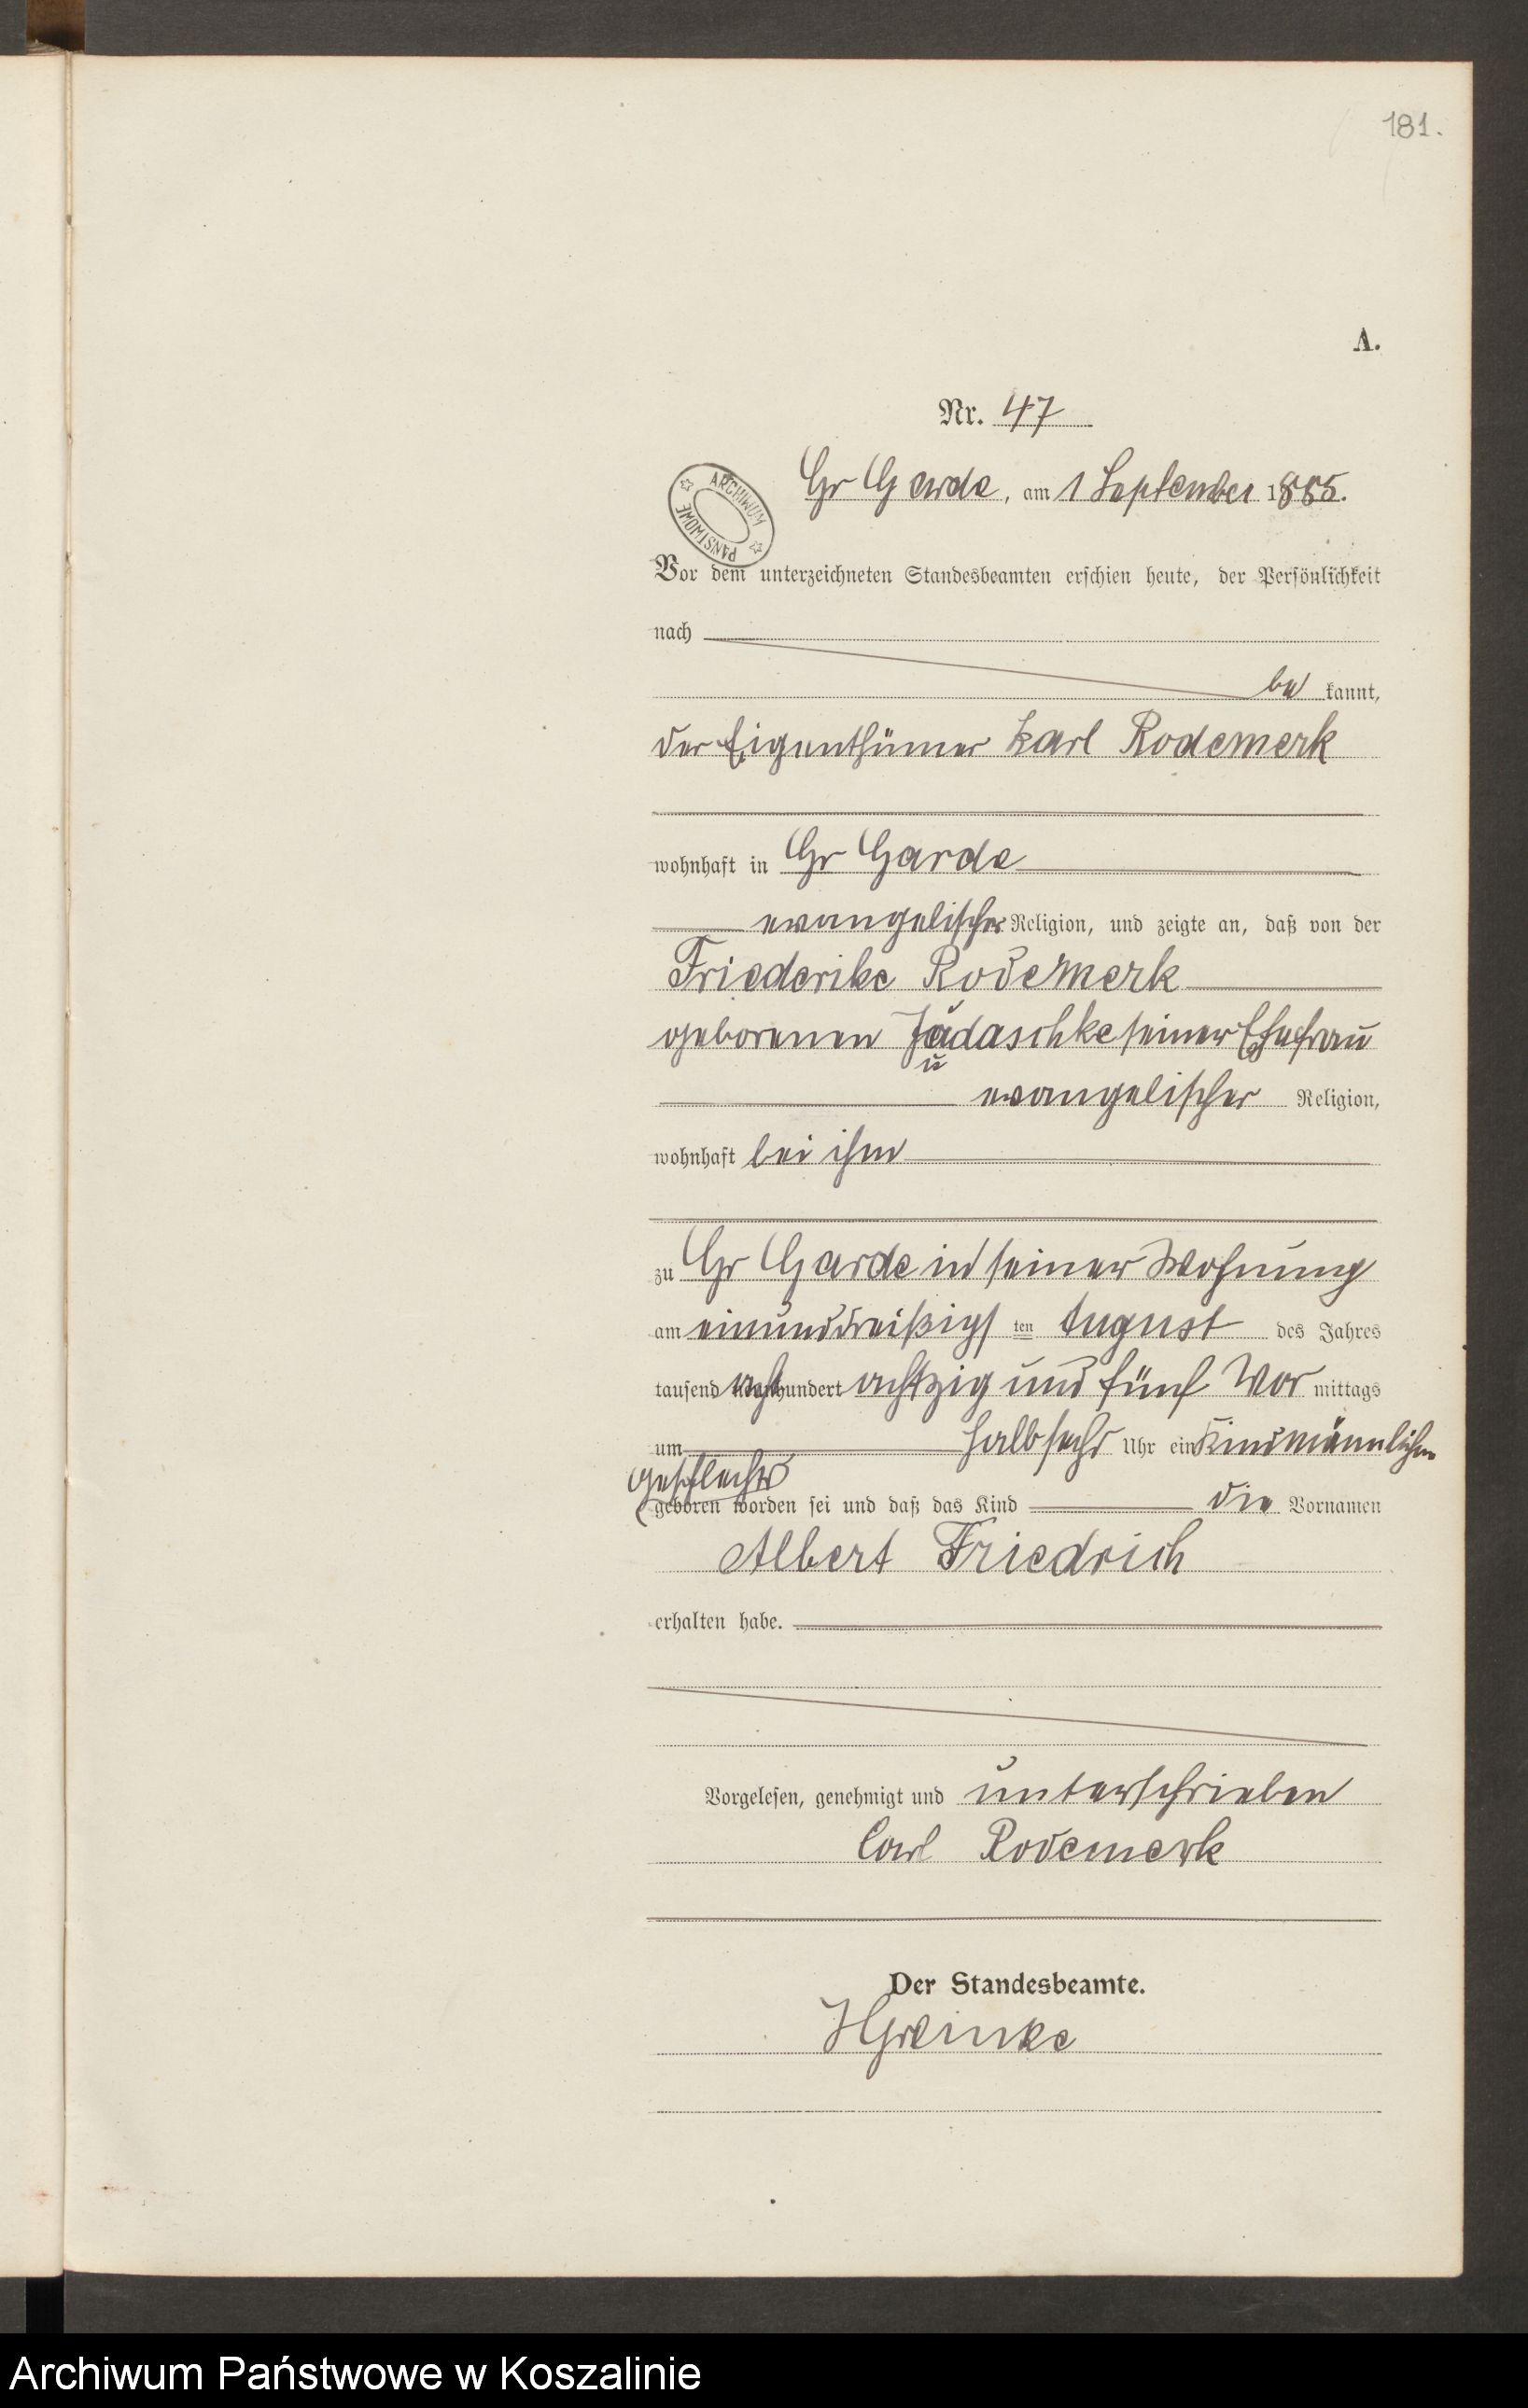 181.
A.
Nr. 47
Gr Garde, am 1 September 1885.
ARCHIWUM PAŃSTWOWE
Vor dem unterzeichneten Standesbeamten erschien heute, der Persönlichkeit
nach
be kannt,
der Eigenthümer Karl Rodemerk
wohnhaft in Gr Garde
evangelischer Religion, und zeigte an, daß von der
Friederike Rodemerk
geborenen seiner Ehefrau
evangelischer Religion,
wohnhaft bei ihm
zu Gr Garde in seiner Wohnung
am einunddreißigs ten August des Jahres
tausend acht hundert achtzig und fünf Vor mittags
um halb sechs Uhr ein Kind männlichen
Geschlechts
geboren worden sei und daß das Kind die Vornamen
Albert Friedrich
erhalten habe.
Vorgelesen, genehmigt und unterschrieben
Carl Rodemerk
Der Standesbeamte.
Archiwum Państwowe w Koszalinie